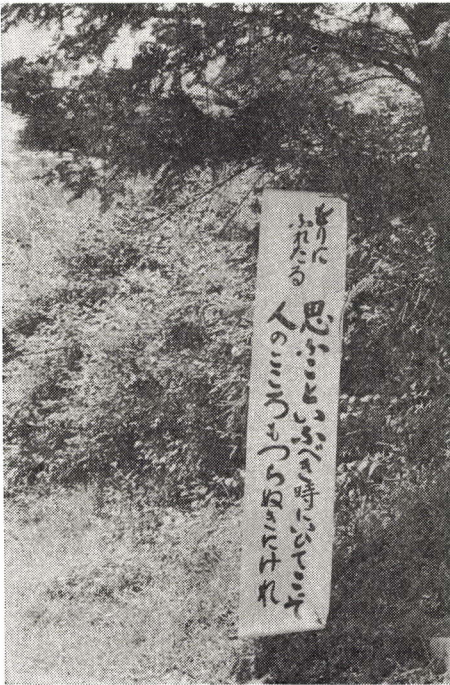 をりに
ふれたる
思ふこといふべき時にいひてこそ
人のこころもつらぬ けれ